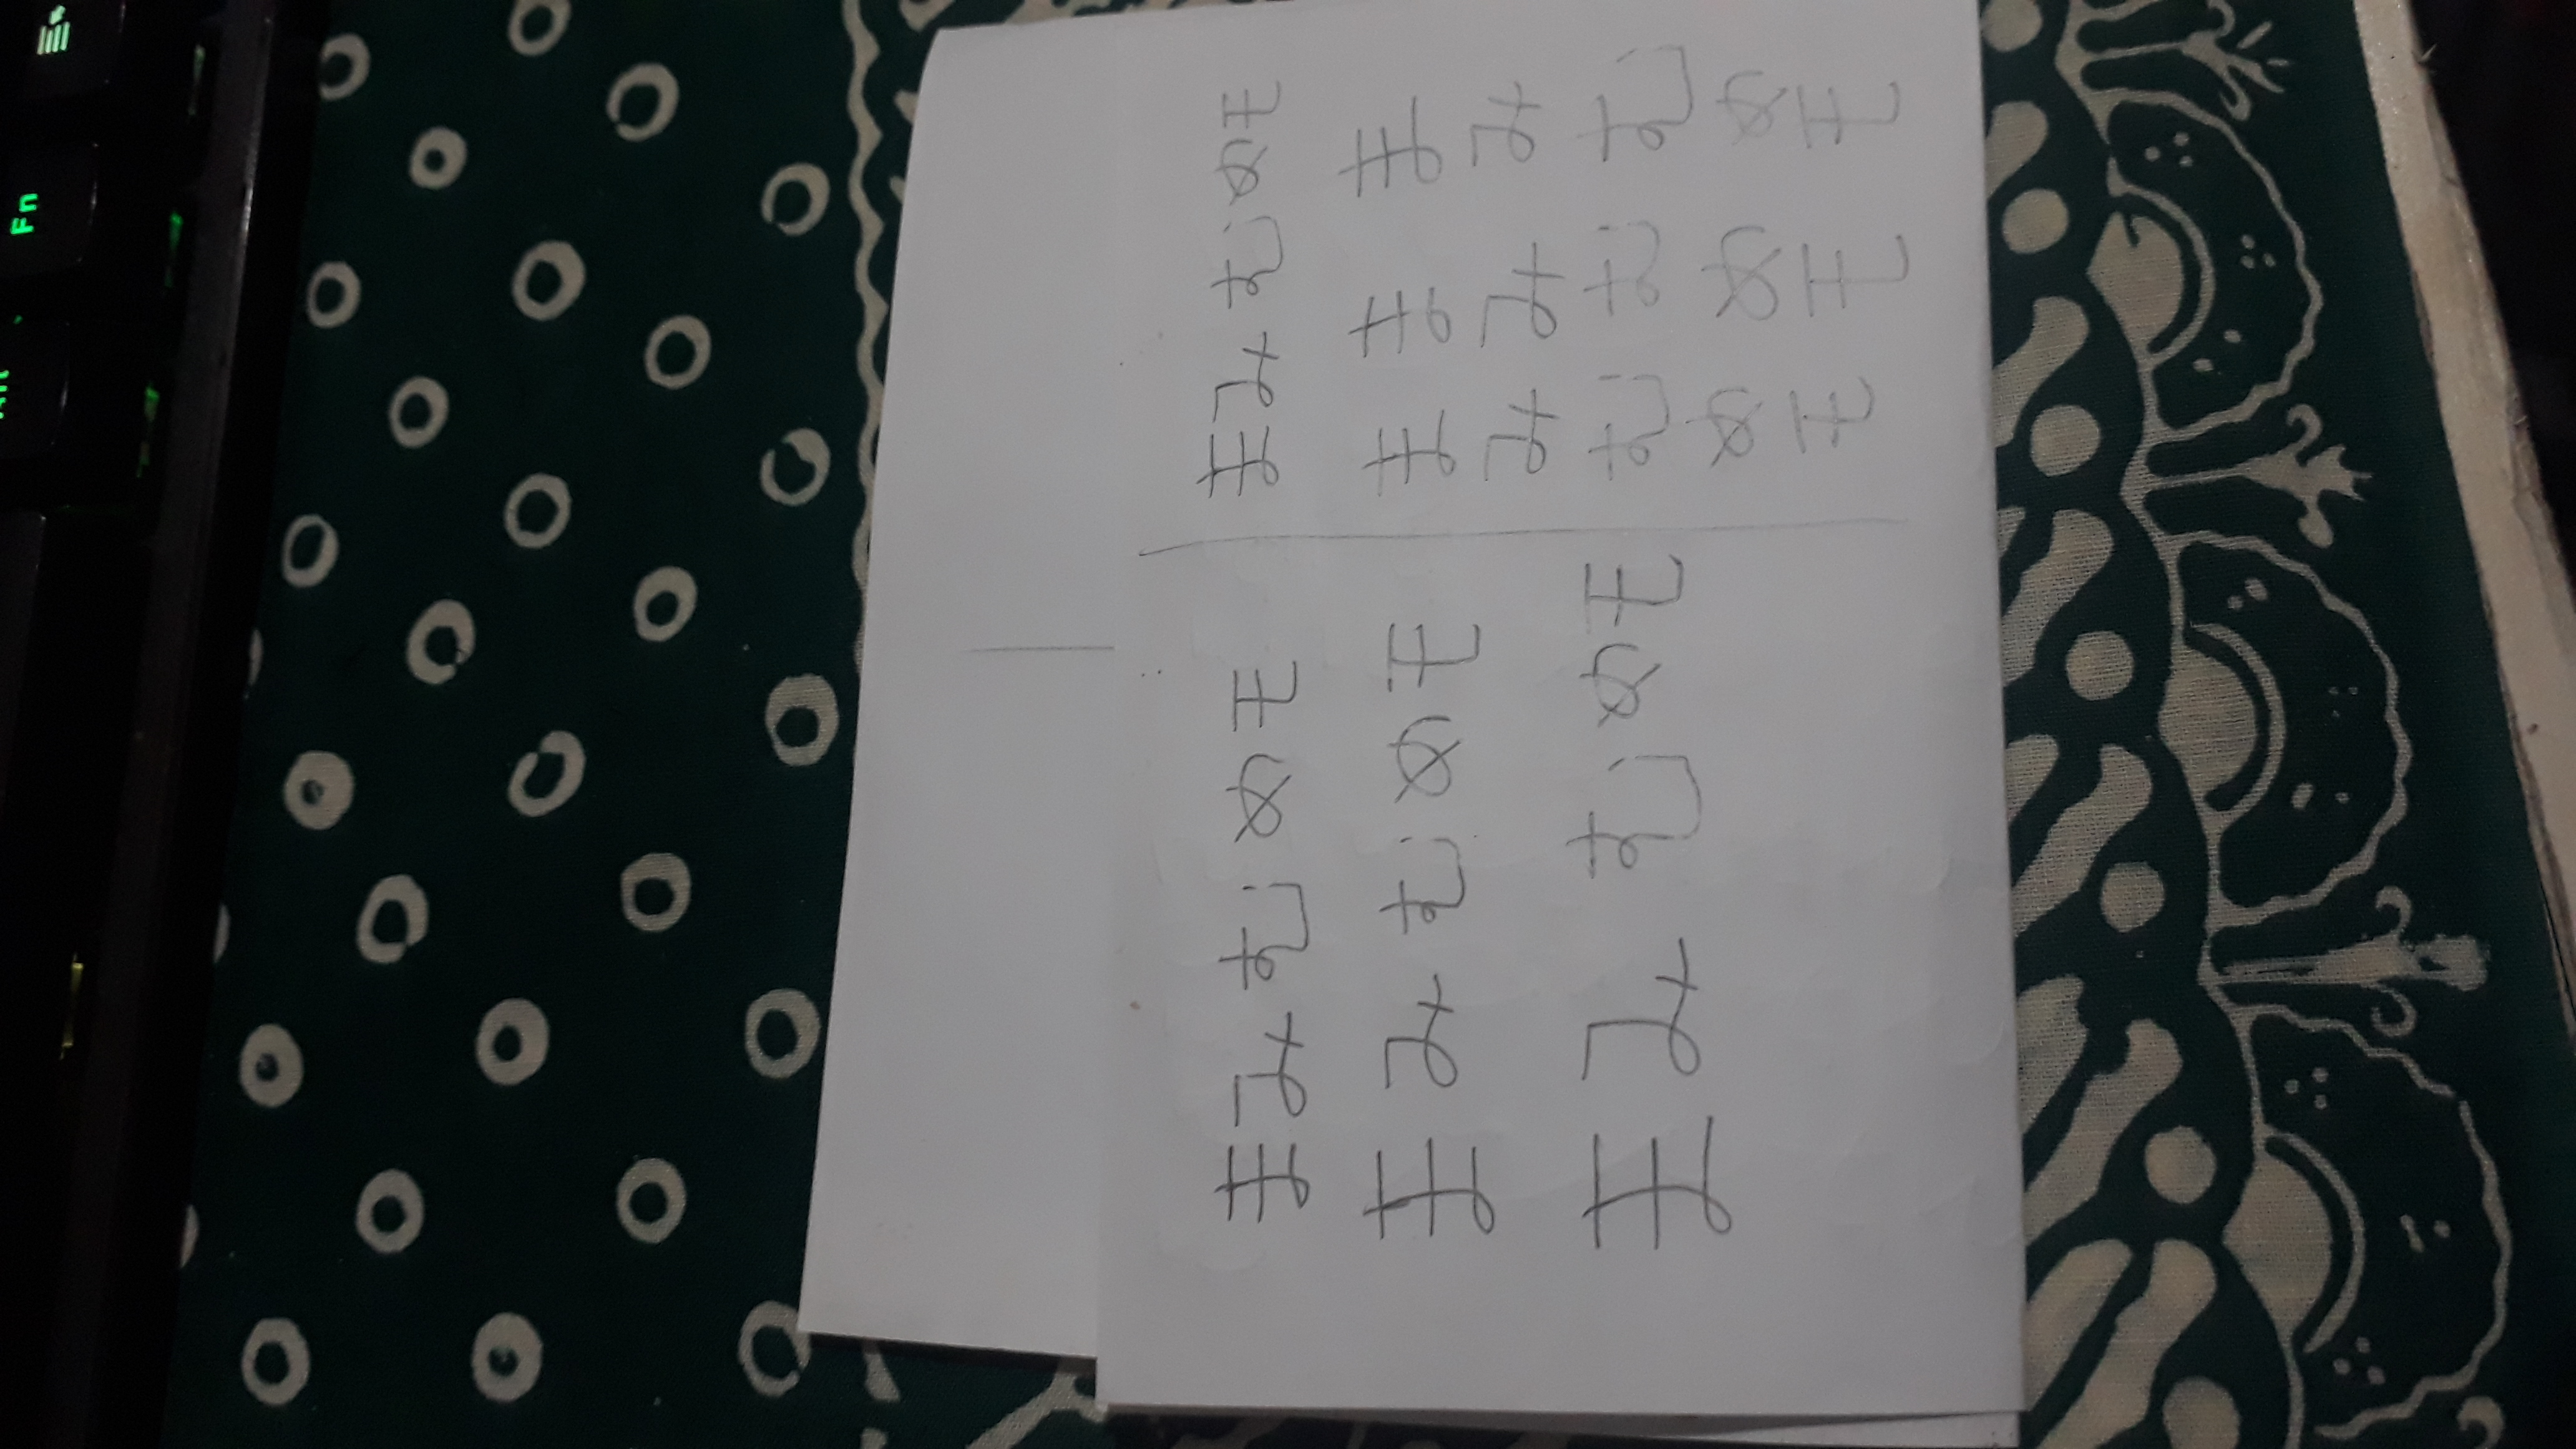 Alt
Fn
まみむめモ
まみむめモ
まみむめモ
まみむめモ
ままま
みみみ
むむむ
めめめ
モモモ